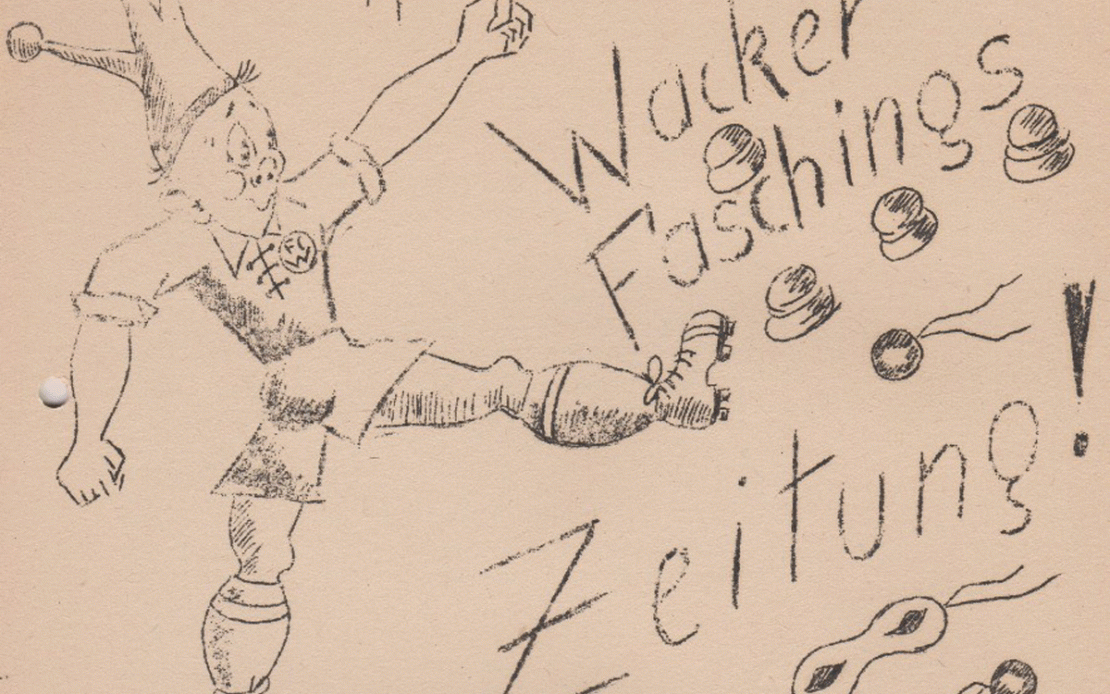 Wacker
Faschings
Zeitung!